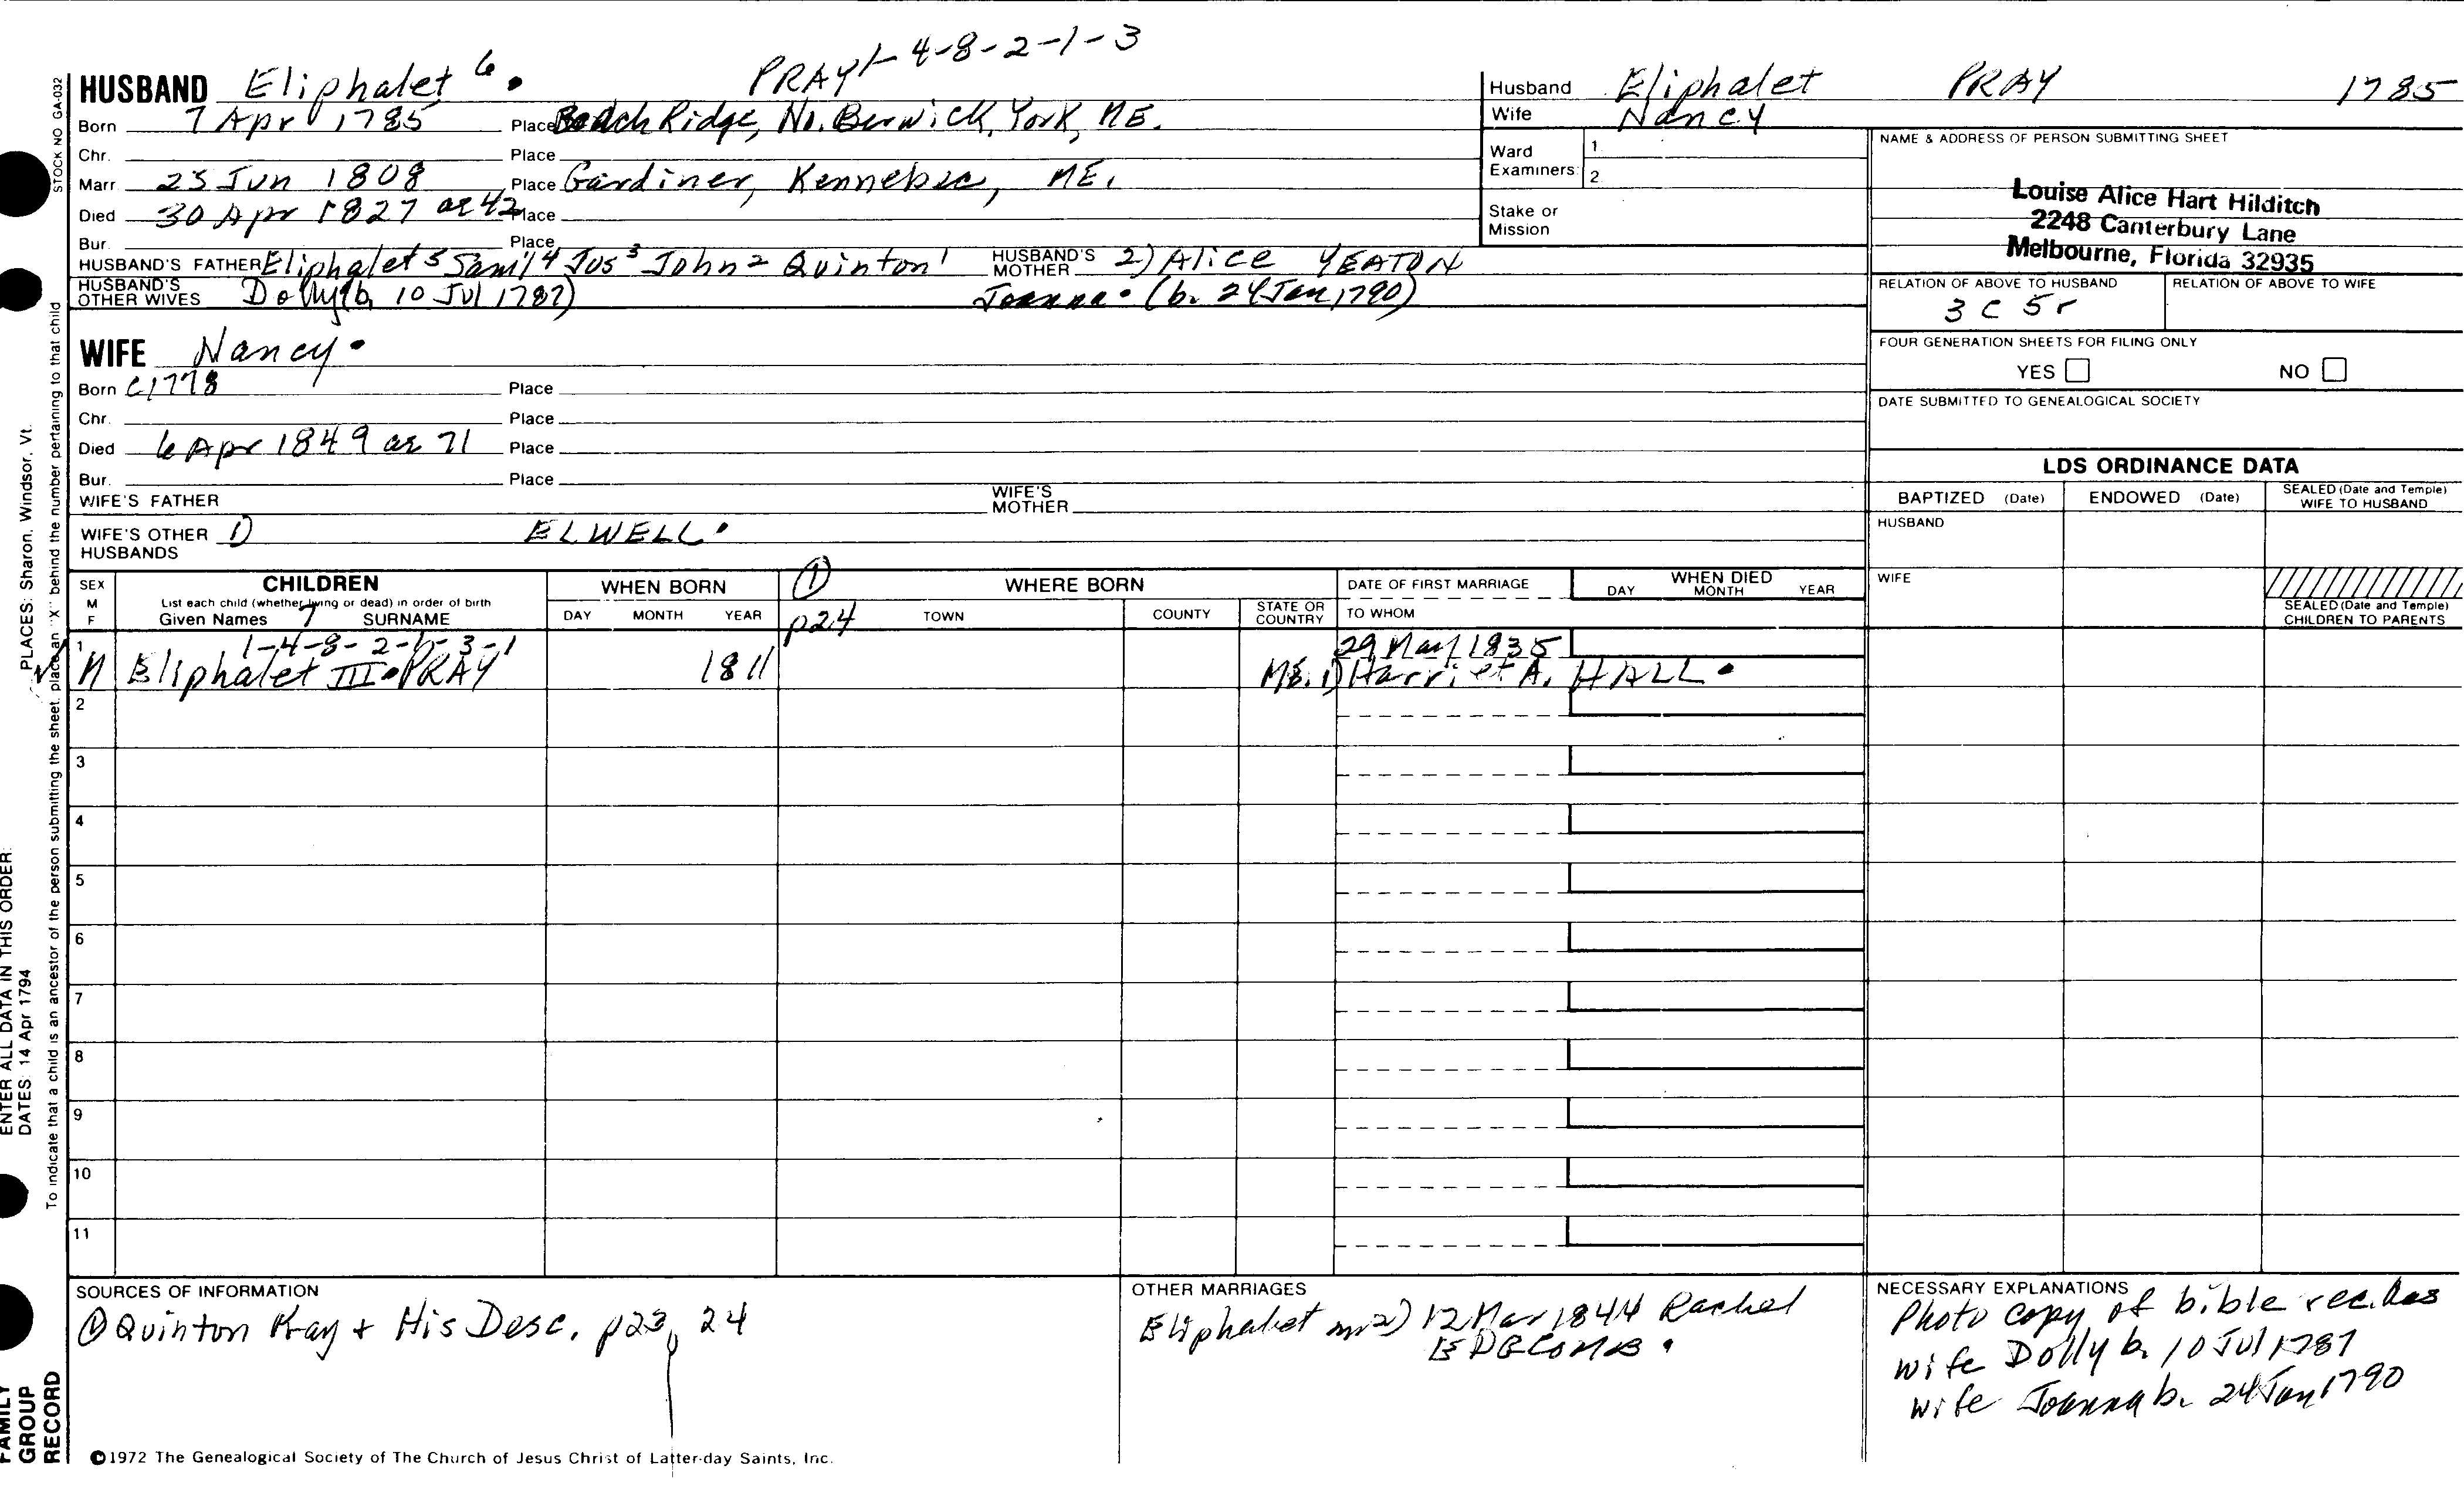 PRAY 1-4-8-2-1-3
HUSBAND Eliphalet 6.
Born 7 Apr 1785 Place Beach Ridge, No. Berwick, York, ME.
Chr. Place
Marr. 25 Jun 1808 Place Gardiner, Kennebec, ME.
Died 30 Apr 1827 ae 42 Place
Bur. Place
HUSBAND'S FATHER Eliphalet 5 Saml 4 Jos 3 John 2 Quinton 1 HUSBAND'S MOTHER 2) Alice YEATON
HUSBAND'S OTHER WIVES Dolly (b. 10 Jul 1787) Joanna. (b. 24 Jan, 1790)
WIFE Nancy.
Born C1778 Place
Chr. Place
Died 6 Apr 1849 ae 71 Place
Bur. Place
WIFE'S FATHER WIFE'S MOTHER
WIFE'S OTHER HUSBANDS 1) ELWELL.
Husband Eliphalet PRAY 1785
Wife Nancy
Ward 1.
Examiners: 2.
Stake or Mission
NAME & ADDRESS OF PERSON SUBMITTING SHEET
Louise Alice Hart Hilditch
2248 Canterbury Lane
Melbourne, Florida 32935
RELATION OF ABOVE TO HUSBAND RELATION OF ABOVE TO WIFE
3 C 5r
FOUR GENERATION SHEETS FOR FILING ONLY
YES NO
DATE SUBMITTED TO GENEALOGICAL SOCIETY
LDS ORDINANCE DATA
BAPTIZED (Date) ENDOWED (Date) SEALED (Date and Temple) WIFE TO HUSBAND
HUSBAND
WIFE
SEALED (Date and Temple) CHILDREN TO PARENTS
SEX M F
CHILDREN
List each child (whether living or dead) in order of birth
Given Names 7 SURNAME
WHEN BORN
DAY MONTH YEAR
① p24
WHERE BORN
TOWN COUNTY STATE OR COUNTRY
DATE OF FIRST MARRIAGE
TO WHOM
WHEN DIED
DAY MONTH YEAR
1 1-4-8-2-1-3-1 29 Mar 1835
M Eliphalet III. PRAY 1811 ME. 1) Harriet A. HALL.
2
3
4
5
6
7
8
9
10
11
SOURCES OF INFORMATION
① Quinton Pray + His Desc. p23, 24
OTHER MARRIAGES
Eliphalet m 2) 12 Mar 1844 Rachel
EDGCOMB.
NECESSARY EXPLANATIONS
Photo copy of bible rec. has
wife Dolly b. 10 Jul 1787
wife Joanna b. 24 Jan 1790
©1972 The Genealogical Society of The Church of Jesus Christ of Latter-day Saints, Inc.
STOCK NO GA-032
To indicate that a child is an ancestor of the person submitting the sheet, place an "X" behind the number pertaining to that child
PLACES: Sharon, Windsor, Vt.
ENTER ALL DATA IN THIS ORDER:
DATES: 14 Apr 1794
FAMILY
GROUP
RECORD